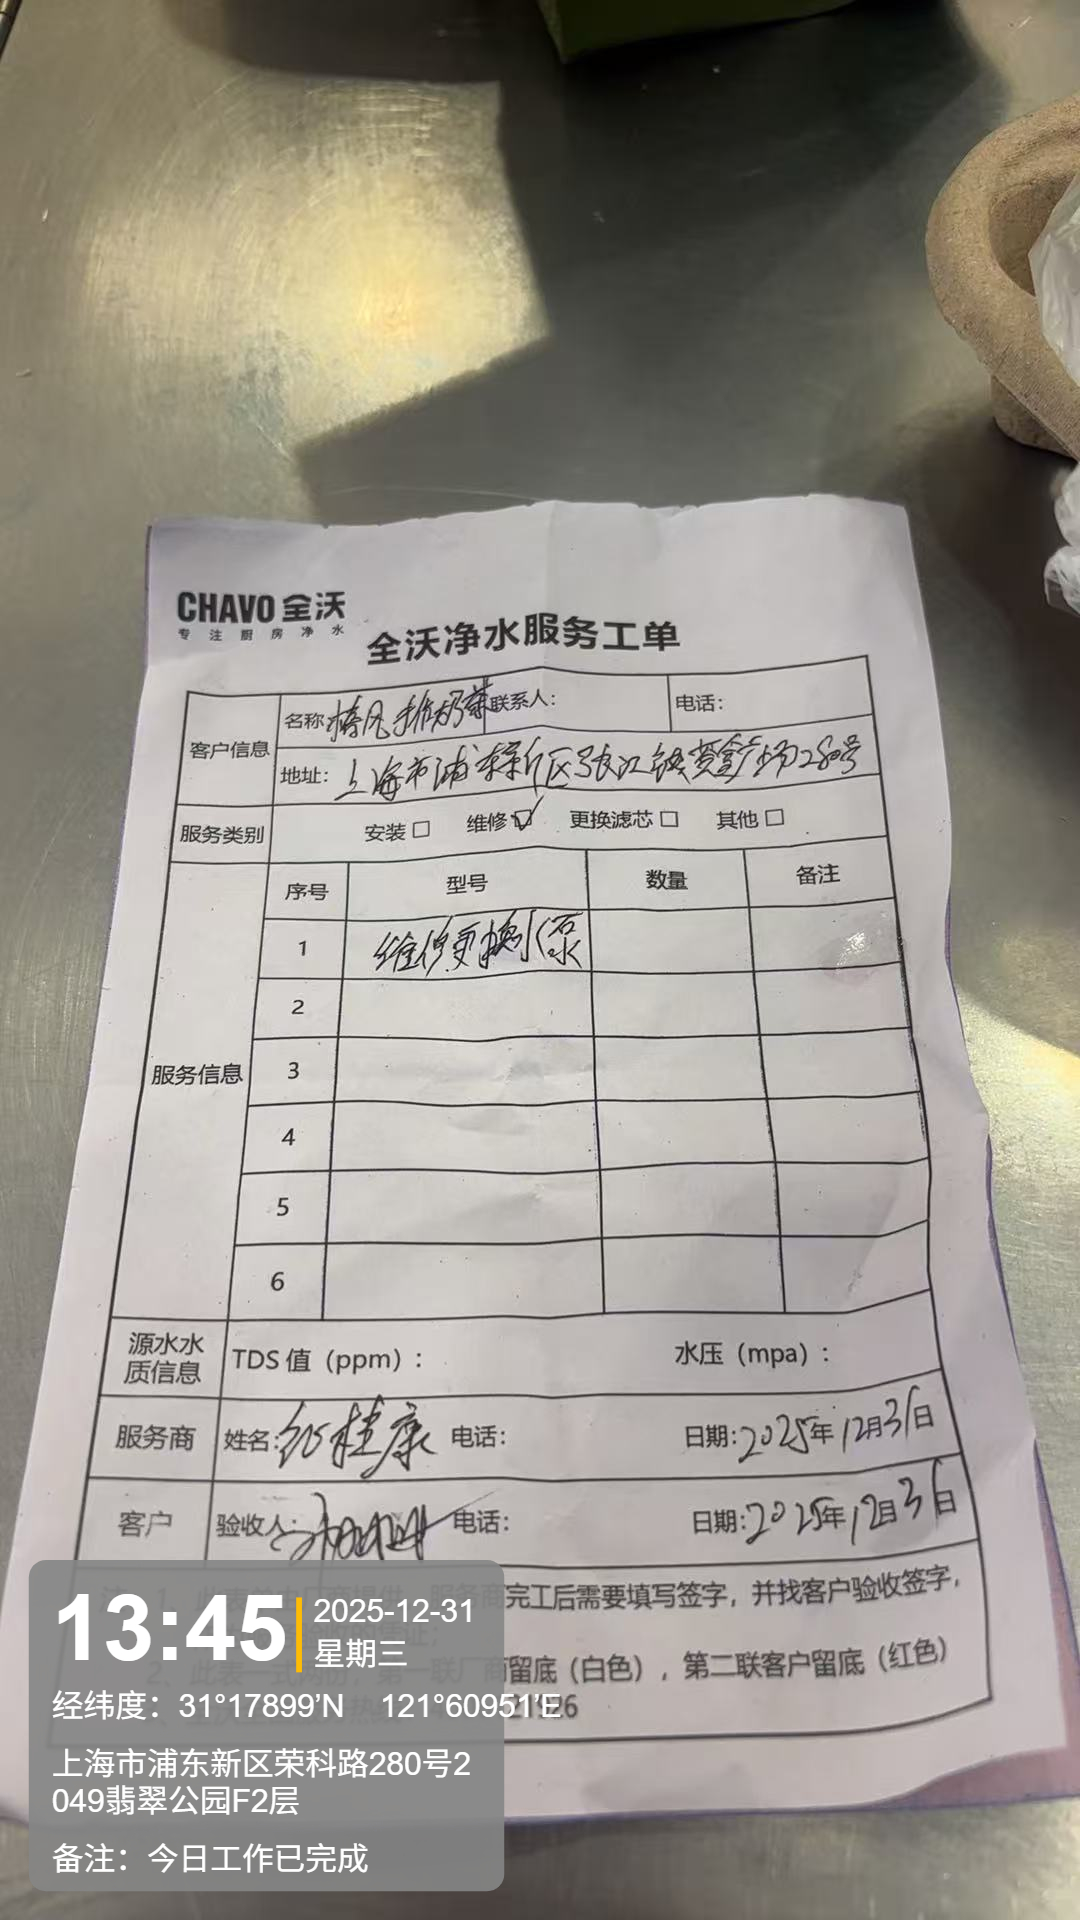 CHAVO 全沃
专注厨房净水
全沃净水服务工单
客户信息 名称 联系人: 电话:
地址: 上海市浦东新区张江 广场280号
服务类别 安装□ 维修☑ 更换滤芯□ 其他□
服务信息 序号 型号 数量 备注
1 维修更换水泵
2
3
4
5
6
源水水质信息 TDS 值（ppm）: 水压（mpa）:
服务商 姓名: 桂康 电话: 日期: 2025年12月31日
客户 验收人: 电话: 日期: 2025年12月31日
完工后需要填写签字，并找客户验收签字，
2、此表一式两份，第一联厂商留底（白色），第二联客户留底（红色）
13:45 2025-12-31
星期三
经纬度：31°17899'N 121°60951'E
上海市浦东新区荣科路280号2
049翡翠公园F2层
备注：今日工作已完成